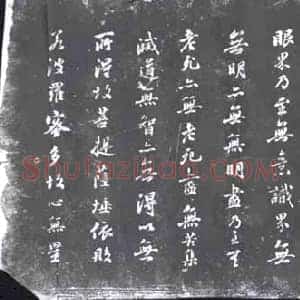 眼界乃至無意識界無
無明亦無無明盡乃至無
老死亦無老死盡無苦集
滅道無智亦無得以無
所得故菩提薩埵依般
若波羅蜜多故心無罣